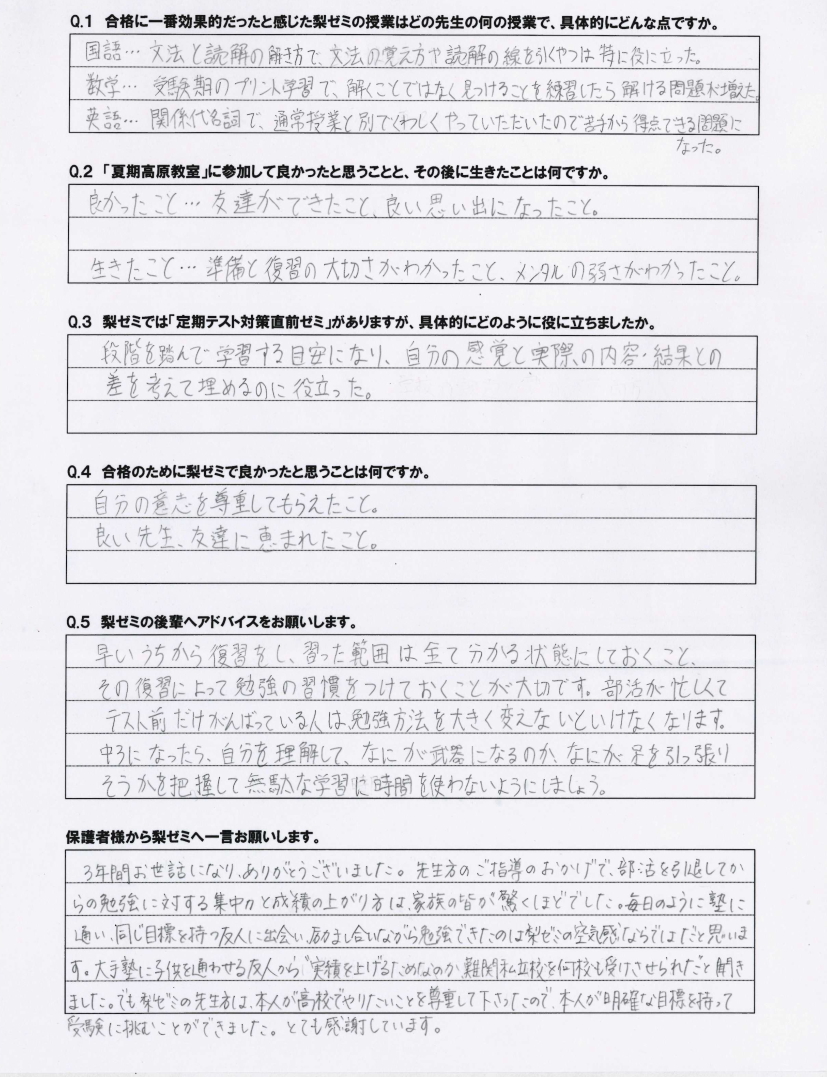 Q.1 合格に一番効果的だったと感じた梨ゼミの授業はどの先生の何の授業で、具体的にどんな点ですか。
国語… 文法と読解の解き方で、文法の覚え方や読解の線を引くやつは特に役に立った。
数学… 受験期のプリント学習で、解くことではなく見つけることを練習したら解ける問題が増えた。
英語… 関係代名詞で、通常授業と別でくわしくやっていただいたので苦手から得点できる問題に
なった。
Q.2 「夏期高原教室」に参加して良かったと思うことと、その後に生きたことは何ですか。
良かったこと… 友達ができたこと、良い思い出になったこと。
生きたこと… 準備と復習の大切さがわかったこと、メンタルの弱さがわかったこと。
Q.3 梨ゼミでは「定期テスト対策直前ゼミ」がありますが、具体的にどのように役に立ちましたか。
段階を踏んで学習する目安になり、自分の感覚と実際の内容・結果との
差を考えて埋めるのに役立った。
Q.4 合格のために梨ゼミで良かったと思うことは何ですか。
自分の意志を尊重してもらえたこと。
良い先生、友達に恵まれたこと。
Q.5 梨ゼミの後輩へアドバイスをお願いします。
早いうちから復習をし、習った範囲は全て分かる状態にしておくこと、
その復習によって勉強の習慣をつけておくことが大切です。部活が忙しくて
テスト前だけがんばっている人は、勉強方法を大きく変えないといけなくなります。
中3になったら、自分を理解して、なにが武器になるのか、なにが足を引っ張り
そうかを把握して無駄な学習に時間を使わないようにしましょう。
保護者様から梨ゼミへ一言お願いします。
3年間お世話になり、ありがとうございました。先生方のご指導のおかげで、部活を引退してか
らの勉強に対する集中力と成績の上がり方は、家族の皆が驚くほどでした。毎日のように塾に
通い、同じ目標を持つ友人に出会い、励まし合いながら勉強できたのは梨ゼミの空気感ならではだと思いま
す。大手塾に子供を通わせる友人から"実績を上げるためなのか難関私立校を何校も受けさせられた"と聞き
ました。でも梨ゼミの先生方は、本人が高校でやりたいことを尊重して下さったので、本人が明確な目標を持って
受験に挑むことができました。とても感謝しています。